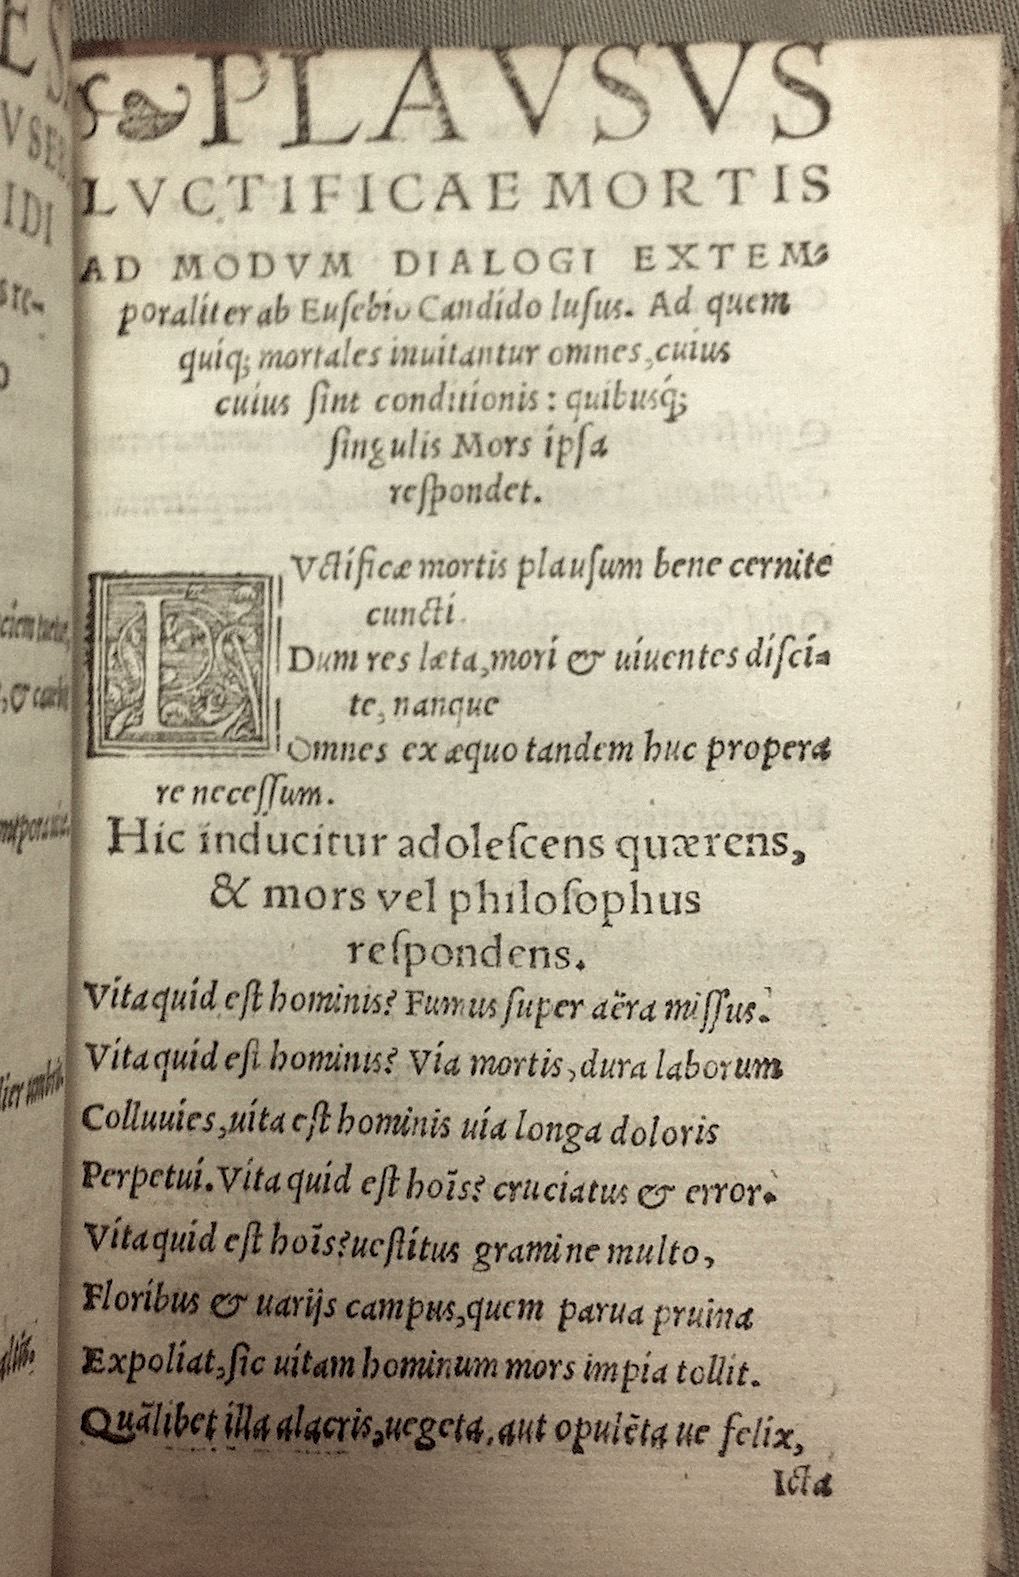 ❧PLAVSVS
LVCTIFICAE MORTIS
AD MODVM DIALOGI EXTEM⸗
poraliter ab Euſebio Candido luſus. Ad quem
quiq; mortales inuitantur omnes, cuius
cuius ſint conditionis: quibusq́;
ſingulis Mors ipſa
reſpondet.
LVctificæ mortis plauſum bene cernite
cuncti.
Dum res læta, mori & uiuentes diſci⸗
te, nanque
Omnes ex æquo tandem huc propera
re neceſſum.
Hic inducitur adoleſcens quærens,
& mors vel philoſophus
reſpondens.
Vita quid eſt hominis? Fumus ſuper aëra miſſus.
Vita quid eſt hominis? Via mortis, dura laborum
Colluuies, uita eſt hominis uia longa doloris
Perpetui. Vita quid eſt hoīs? cruciatus & error.
Vita quid eſt hoīs? ueſtitus gramine multo,
Floribus & uarijs campus, quem parua pruina
Expoliat, ſic uitam hominum mors impia tollit.
Quālibet illa alacris, uegeta, aut opulēta ue felix,
Icta